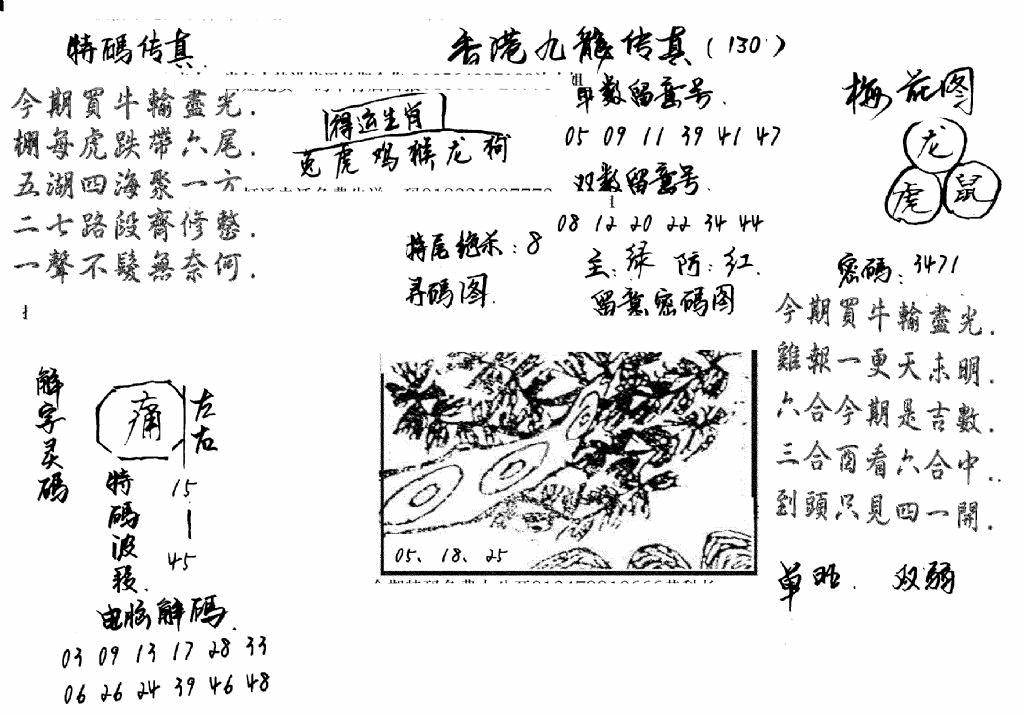 特碼传真
香港九龍传真(130)
今期買牛輸盡光.
棚每虎跌帶六尾.
五湖四海聚一方
二七路段齊修整.
一聲不髮無奈何.
得运生肖
兔虎鸡猴龙狗
特尾绝杀:8
寻码图.
单数留意号.
05 09 11 39 41 47
双数留意号.
08 12 20 22 34 44
主:绿 防:红.
留意密码图
梅花图
龙
虎 鼠
密码:3471
今期買牛輸盡光.
雞報一更天未明.
六合今期是吉數.
三合酉看六合中..
到頭只見四一開.
单旺. 双弱
解字灵碼
痛
左右
特碼波段.
15
|
45
电脑解碼.
03 09 13 17 28 33
06 26 24 39 46 48
05、18、25